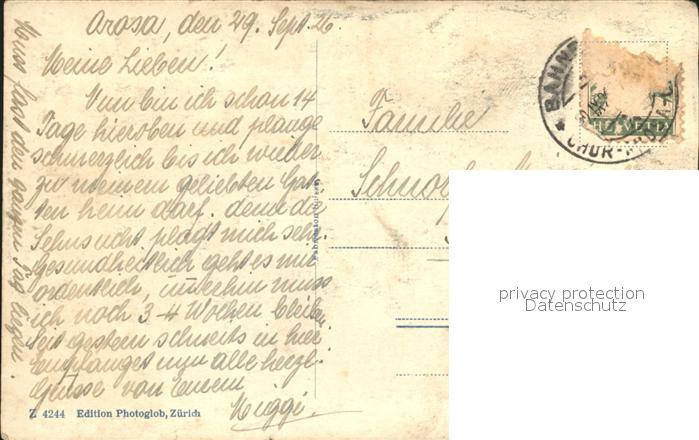 Arosa, den 29. Sept. 26.
Meine Lieben!
Nun bin ich schon 14
Tage hieroben und plange
schmerzlich bis ich wieder
zu meinem geliebten Gat-
ten heim darf. denn die
Sehnsucht plagt mich sehr.
Gesundheitlich geht es mir
ordentlich, immerhin muss
ich noch 3-4 Wochen bleiben
Seit gestern schneits in hier
Empfanget nun alle herzl.
Grüsse von Eurem
Miggi.
Muss fast den ganzen Tag liegen.
Z 4244 Edition Photoglob, Zürich
Familie
HELVETIA
BAHN
CHUR
privacy protection
Datenschutz